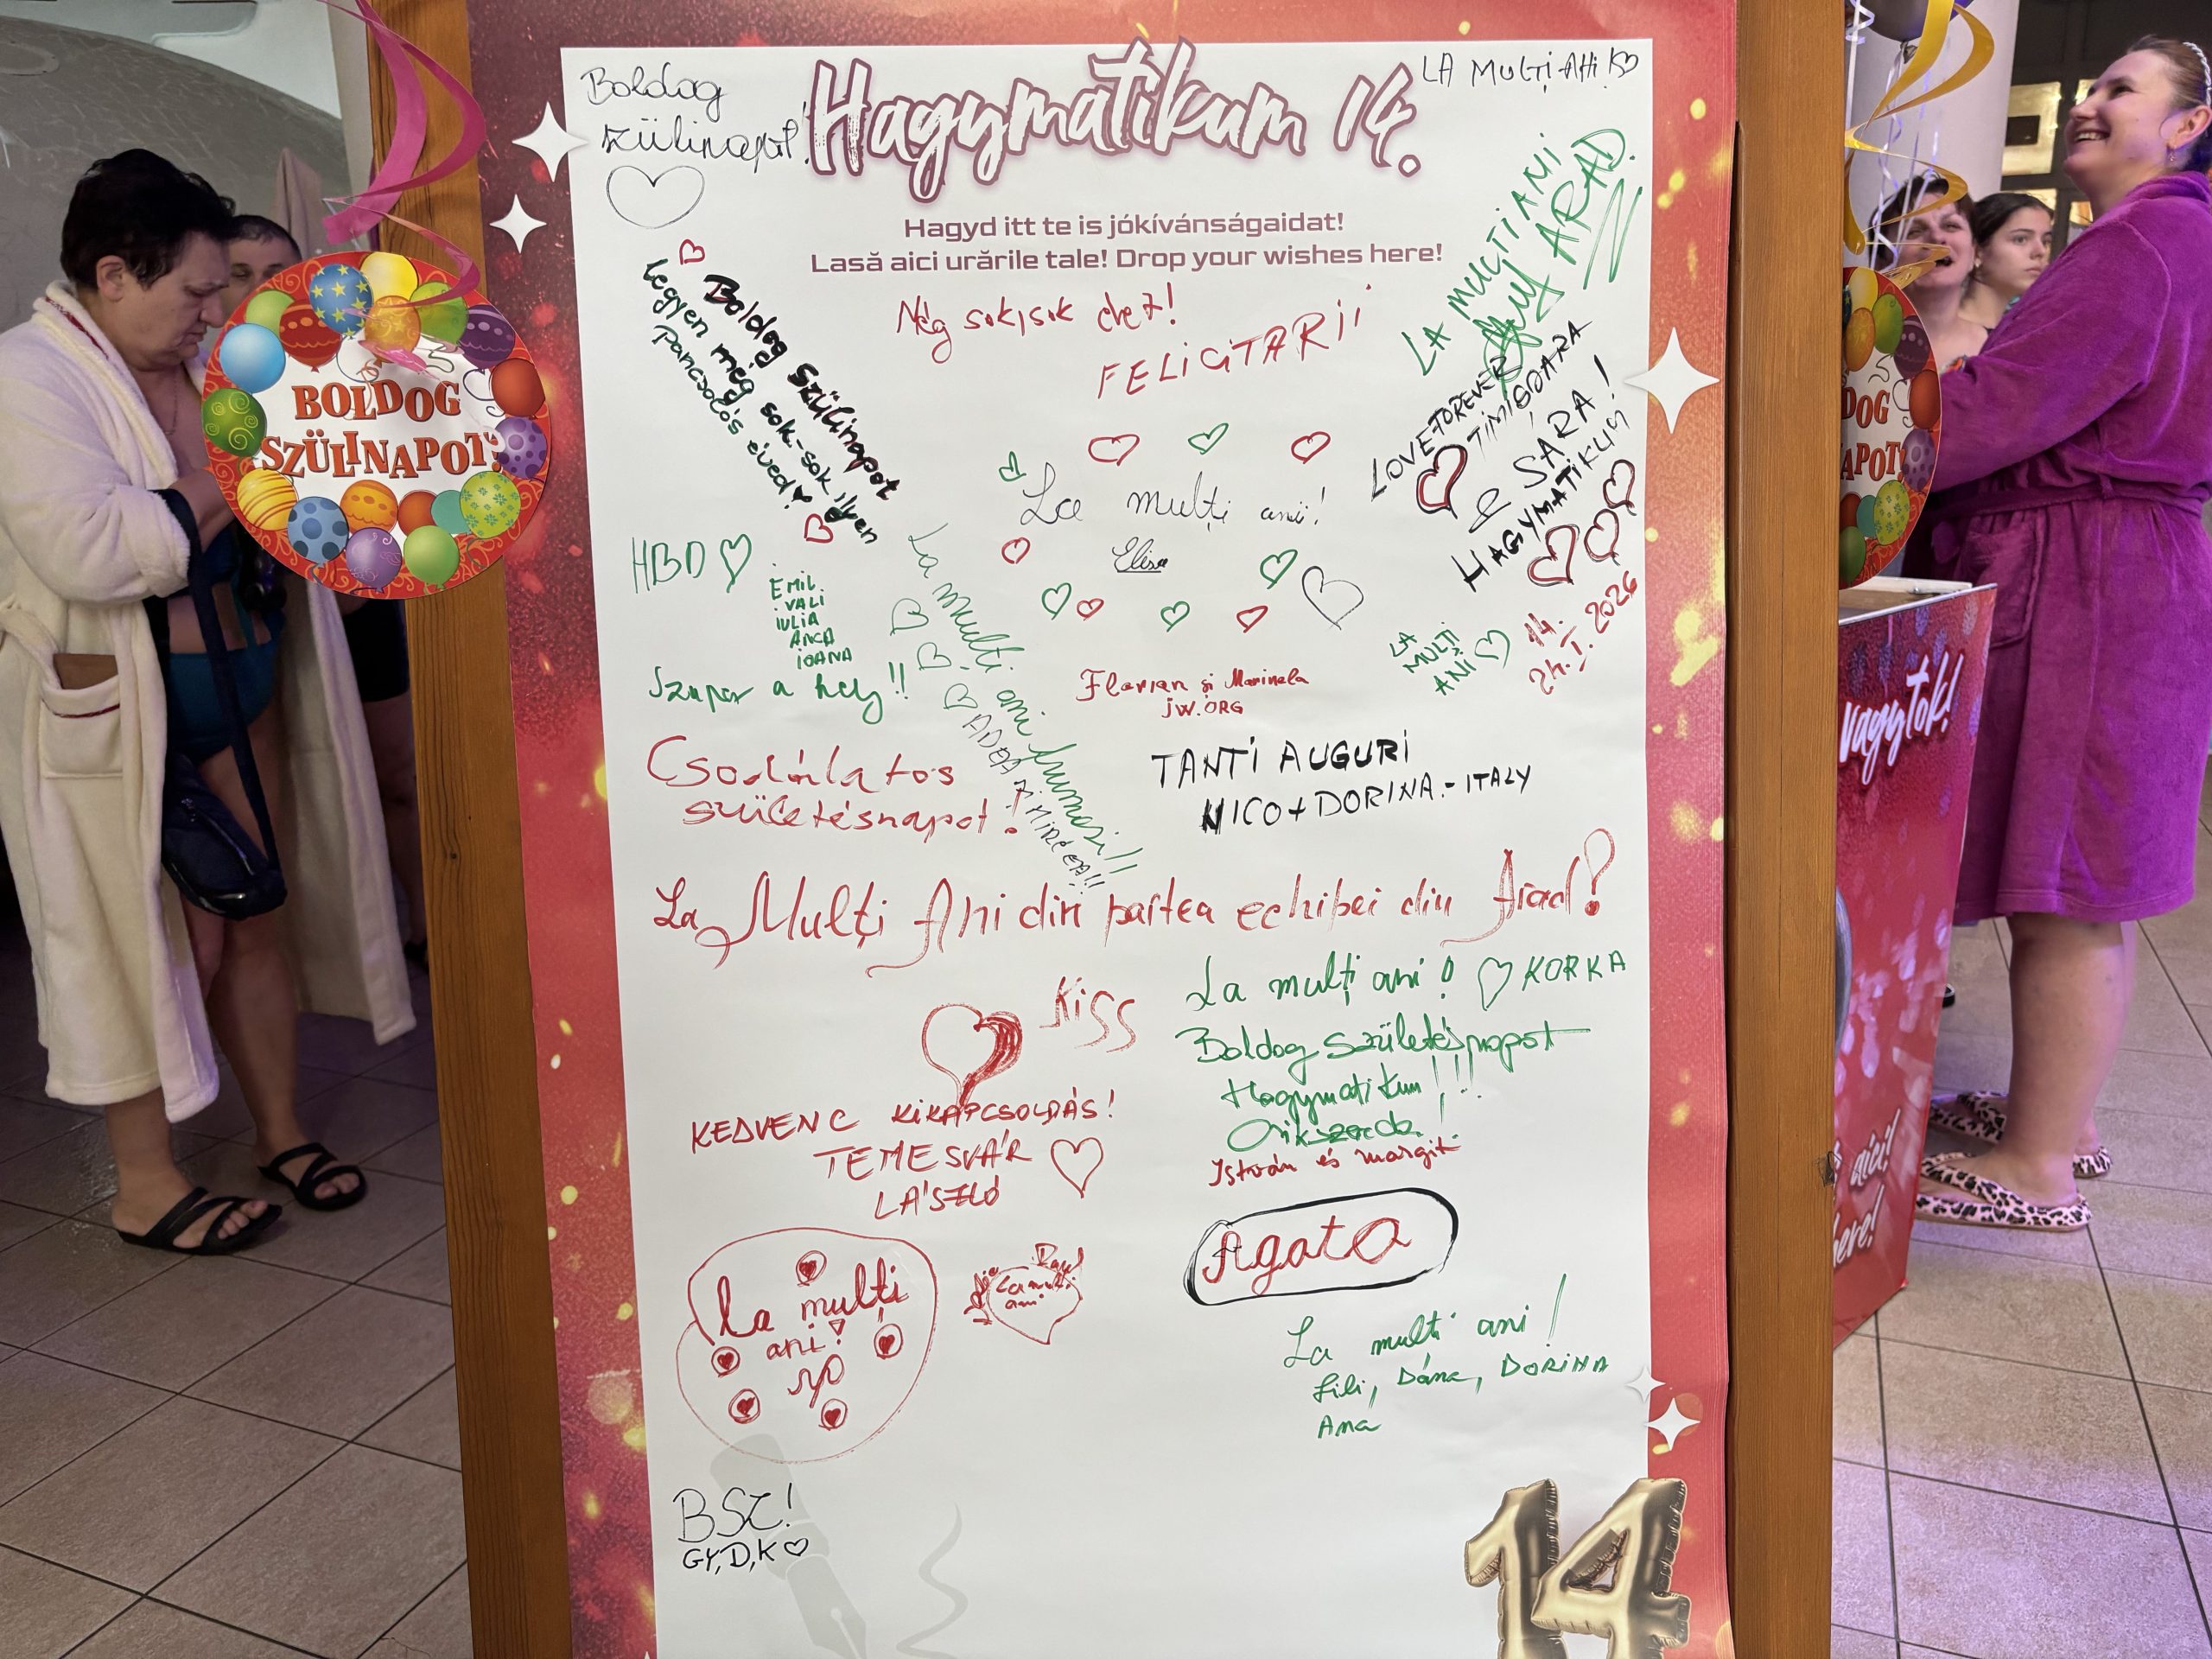 Boldog
szülinapot!
Hagymatikum 14.
LA MULȚI ANI!
Hagyd itt te is jókívánságaidat!
Lasă aici urările tale! Drop your wishes here!
BOLDOG
SZÜLINAPOT!
Boldog Szülinapot
Legyen még sok-sok ilyen
Pancsolós éved!
Még sok, sok évet!
FELICITARII
LA MULTI ANI
ARAD.
LOVE FOREVER
TIMIȘOARA
& SARA!
HAGYMATIKUM
14.
24.I.2026
La mulți ani!
Elisa
HBD
EMIL
VALI
IULIA
ANCA
IOANA
La multi ani frumosi!!
ADEA MIRCEA!!
LA
MULȚI
ANI
Szuper a hely!!
Florian și Marinela
JW.ORG
Csodálatos
születésnapot!
TANTI AUGURI
NICO + DORINA.- ITALY
La Mulți Ani din partea echipei din Arad!
La mulți ani! KORKA
KISS
Boldog születésnapot
Hagymatikum!!!
István és margit
KEDVENC KIKAPCSOLDÁS!
TEMESVÁR
LÁSZLÓ
Agata
La mulți
ani!
La multi
ani
La multi ani!
Lili, Dána, DORINA
Ana
BSZ!
GY, D, K
14
DOG
APOT!
vagytok!
aici!
here!